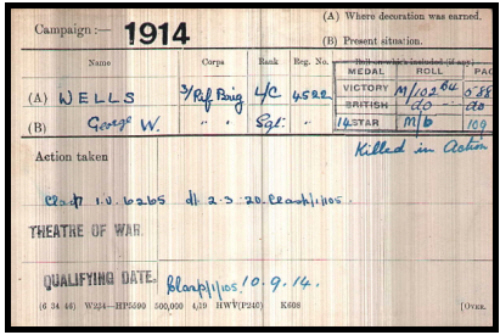 (A) Where decoration was earned.
Campaign :— 1914
(B) Present situation.
Name Corps Rank Reg. No.
MEDAL ROLL PAG
(A) WELLS 3/Rif Brig L/C 4522 VICTORY M/102 B4
BRITISH do do
(B) George W. " " Sgt. " 14 STAR M/6 109
Killed in Action
Action taken
I.V. 6265 d/ 2-3-20.
THEATRE OF WAR.
QUALIFYING DATE. 10.9.14.
(6 34 46) W234—HP5590 500,000 4/19 HWV(P240) K608 [OVER.